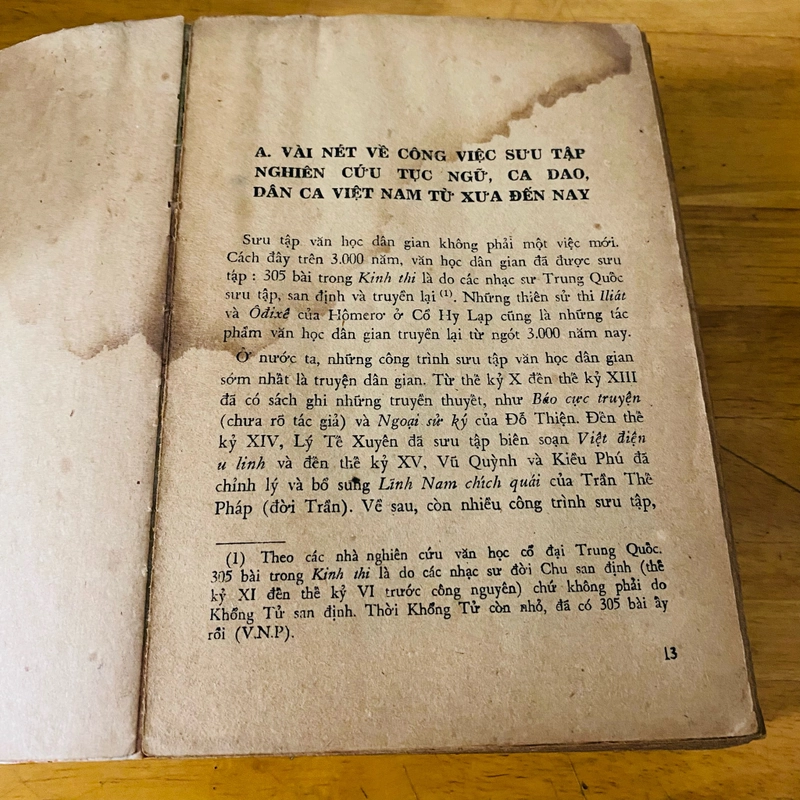 A. VÀI NÉT VỀ CÔNG VIỆC SƯU TẬP
NGHIÊN CỨU TỤC NGỮ, CA DAO,
DÂN CA VIỆT NAM TỪ XƯA ĐẾN NAY
Sưu tập văn học dân gian không phải một việc mới.
Cách đây trên 3.000 năm, văn học dân gian đã được sưu
tập : 305 bài trong Kinh thi là do các nhạc sư Trung Quốc
sưu tập, san định và truyền lại (1). Những thiên sử thi Iliát
và Ôđixê của Hômerơ ở Cổ Hy Lạp cũng là những tác
phẩm văn học dân gian truyền lại từ ngót 3.000 năm nay.
Ở nước ta, những công trình sưu tập văn học dân gian
sớm nhất là truyện dân gian. Từ thế kỷ X đến thế kỷ XIII
đã có sách ghi những truyền thuyết, như Báo cực truyện
(chưa rõ tác giả) và Ngoại sử ký của Đỗ Thiện. Đến thế
kỷ XIV, Lý Tế Xuyên đã sưu tập biên soạn Việt điện
u linh và đến thế kỷ XV, Vũ Quỳnh và Kiều Phú đã
chỉnh lý và bổ sung Lĩnh Nam chích quái của Trần Thế
Pháp (đời Trần). Về sau, còn nhiều công trình sưu tập,
(1) Theo các nhà nghiên cứu văn học cổ đại Trung Quốc.
305 bài trong Kinh thi là do các nhạc sư đời Chu san định (thế
kỷ XI đến thế kỷ VI trước công nguyên) chứ không phải do
Khổng Tử san định. Thời Khổng Tử còn nhỏ, đã có 305 bài ấy
rồi (V.N.P).
13